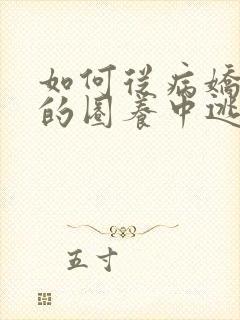 如何從病嬌
的圈養中逃
五寸